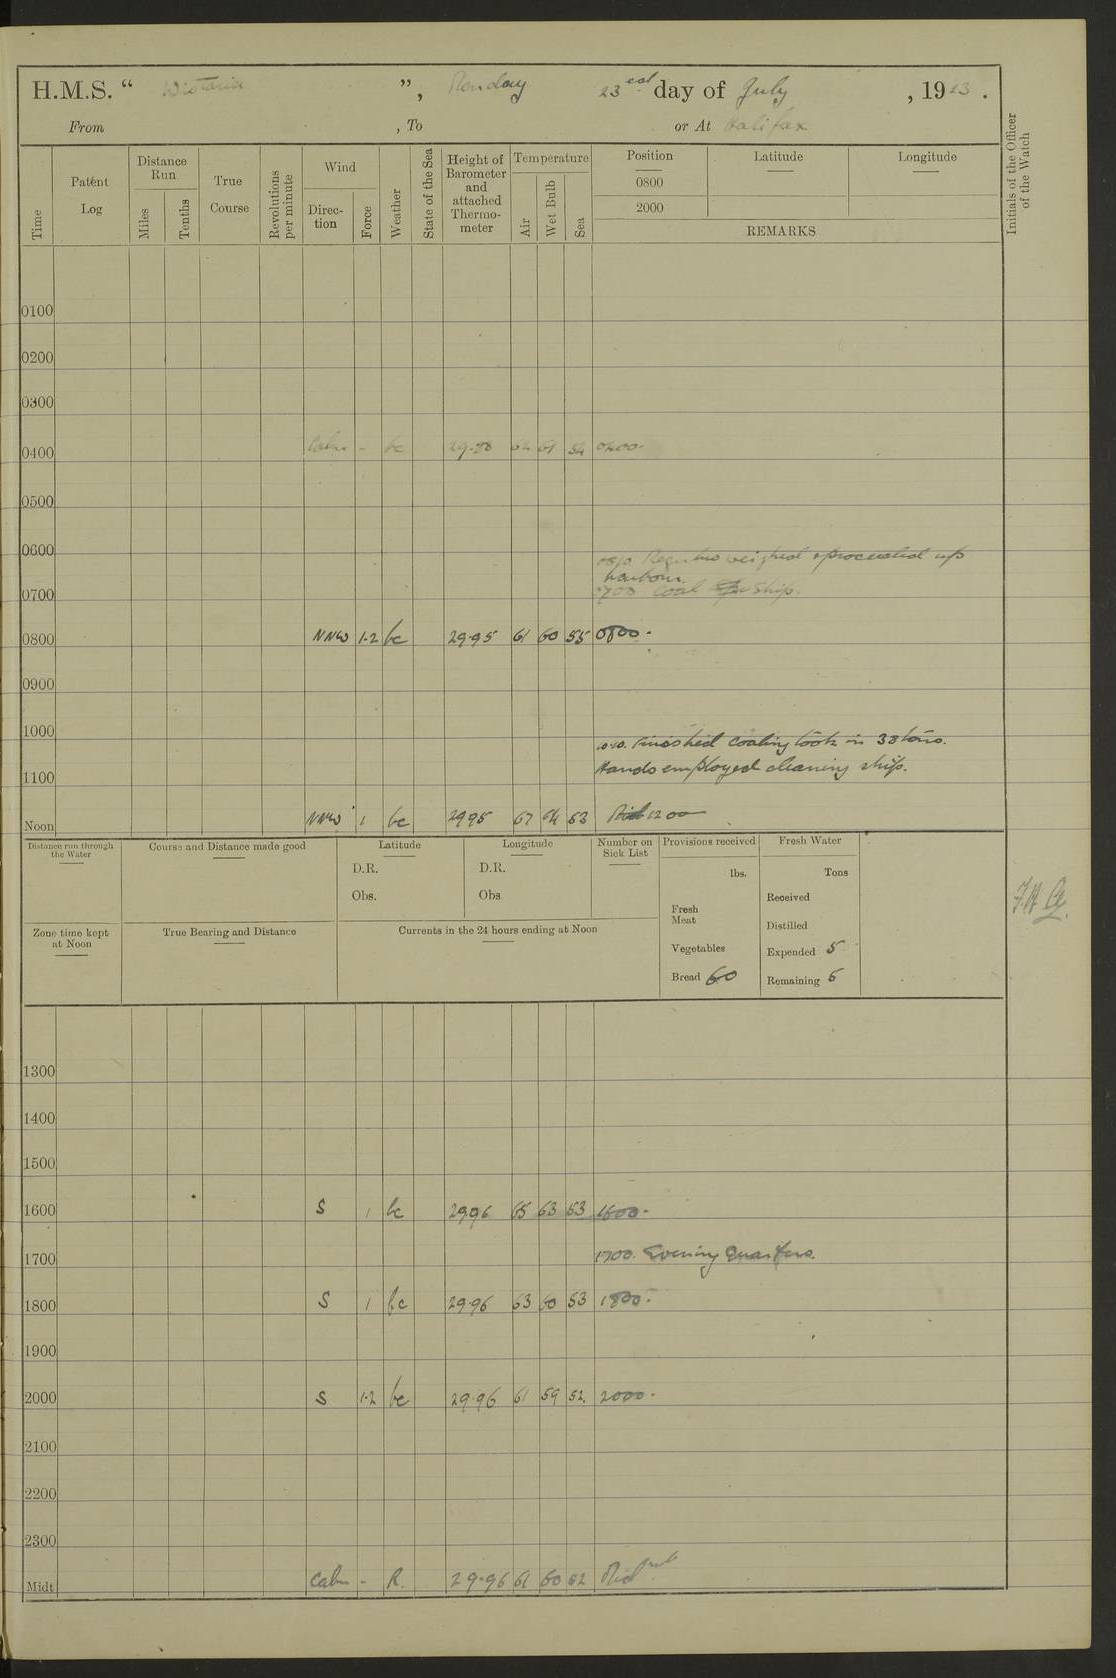 H.M.S. “ Wistaria ”, Monday 23rd day of July, 1923.
From , To or At Halifax
Time
Patent Log
Distance Run
Miles
Tenths
True Course
Revolutions per minute
Wind
Direc-tion
Force
Weather
State of the Sea
Height of Barometer and attached Thermo-meter
Temperature
Air
Wet Bulb
Sea
Position
0800
2000
Latitude
Longitude
REMARKS
Initials of the Officer of the Watch
0100
0200
0300
0400 Calm - bc 61 54 0400.
0500
0600
weighed & proceeded up
harbour.
0700
0700 Coal Ship.
0800 NNW 1-2 bc 29.95 61 60 55 0800.
0900
1000
Finished coaling took in 38 tons.
Hands employed cleaning ship.
1100
Noon NNW 1 bc 2995 67 64 53 1200
Distance run through the Water
Course and Distance made good
Latitude
D.R.
Obs.
Longitude
D.R.
Obs
Number on Sick List
Provisions received
lbs.
Fresh Meat
Vegetables
Bread 60
Fresh Water
Tons
Received
Distilled
Expended 5
Remaining 6
Zone time kept at Noon
True Bearing and Distance
Currents in the 24 hours ending at Noon
1300
1400
1500
1600 S 1 bc 2996 65 63 53 1600.
1700 1700. Evening Quarters.
1800 S 1 bc 29.96 63 60 53 1800.
1900
2000 S 1-2 bc 29.96 61 59 52. 2000.
2100
2200
2300
Midt Calm - R. 29.96 61 60 52